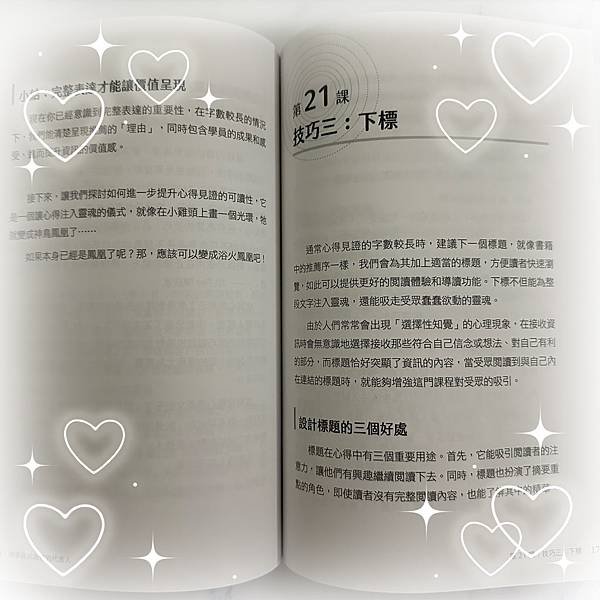 小結：完整表達才能讓價值呈現
現在你已經意識到完整表達的重要性，在字數較長的情況
下，我們能清楚呈現推薦的「理由」，同時包含學員的成果和感
受，進而提升資訊的價值感。
接下來，讓我們探討如何進一步提升心得見證的可讀性，它
是一個讓心得注入靈魂的儀式，就像在小雞頭上畫一個光環，牠
就變成神鳥鳳凰了⋯⋯
如果本身已經是鳳凰了呢？那，應該可以變成浴火鳳凰吧！
第21課
技巧三：下標
通常心得見證的字數較長時，建議下一個標題，就像書籍
中的推薦序一樣，我們會為其加上適當的標題，方便讀者快速瀏
覽，如此可以提供更好的閱讀體驗和導讀功能。下標不但能為整
段文字注入靈魂，還能吸走受眾蠢蠢欲動的靈魂。
由於人們常常會出現「選擇性知覺」的心理現象，在接收資
訊時會無意識地選擇接收那些符合自己信念或想法、對自己有利
的部分，而標題恰好突顯了資訊的內容，當受眾閱讀到與自己內
在連結的標題時，就能夠增強這門課程對受眾的吸引。
設計標題的三個好處
標題在心得中有三個重要用途。首先，它能吸引閱讀者的注
意力，讓他們有興趣繼續閱讀下去。同時，標題也扮演了摘要重
點的角色，即使讀者沒有完整閱讀內容，也能了解其中的精華。
的代言人
第21課｜技巧三：下標 17